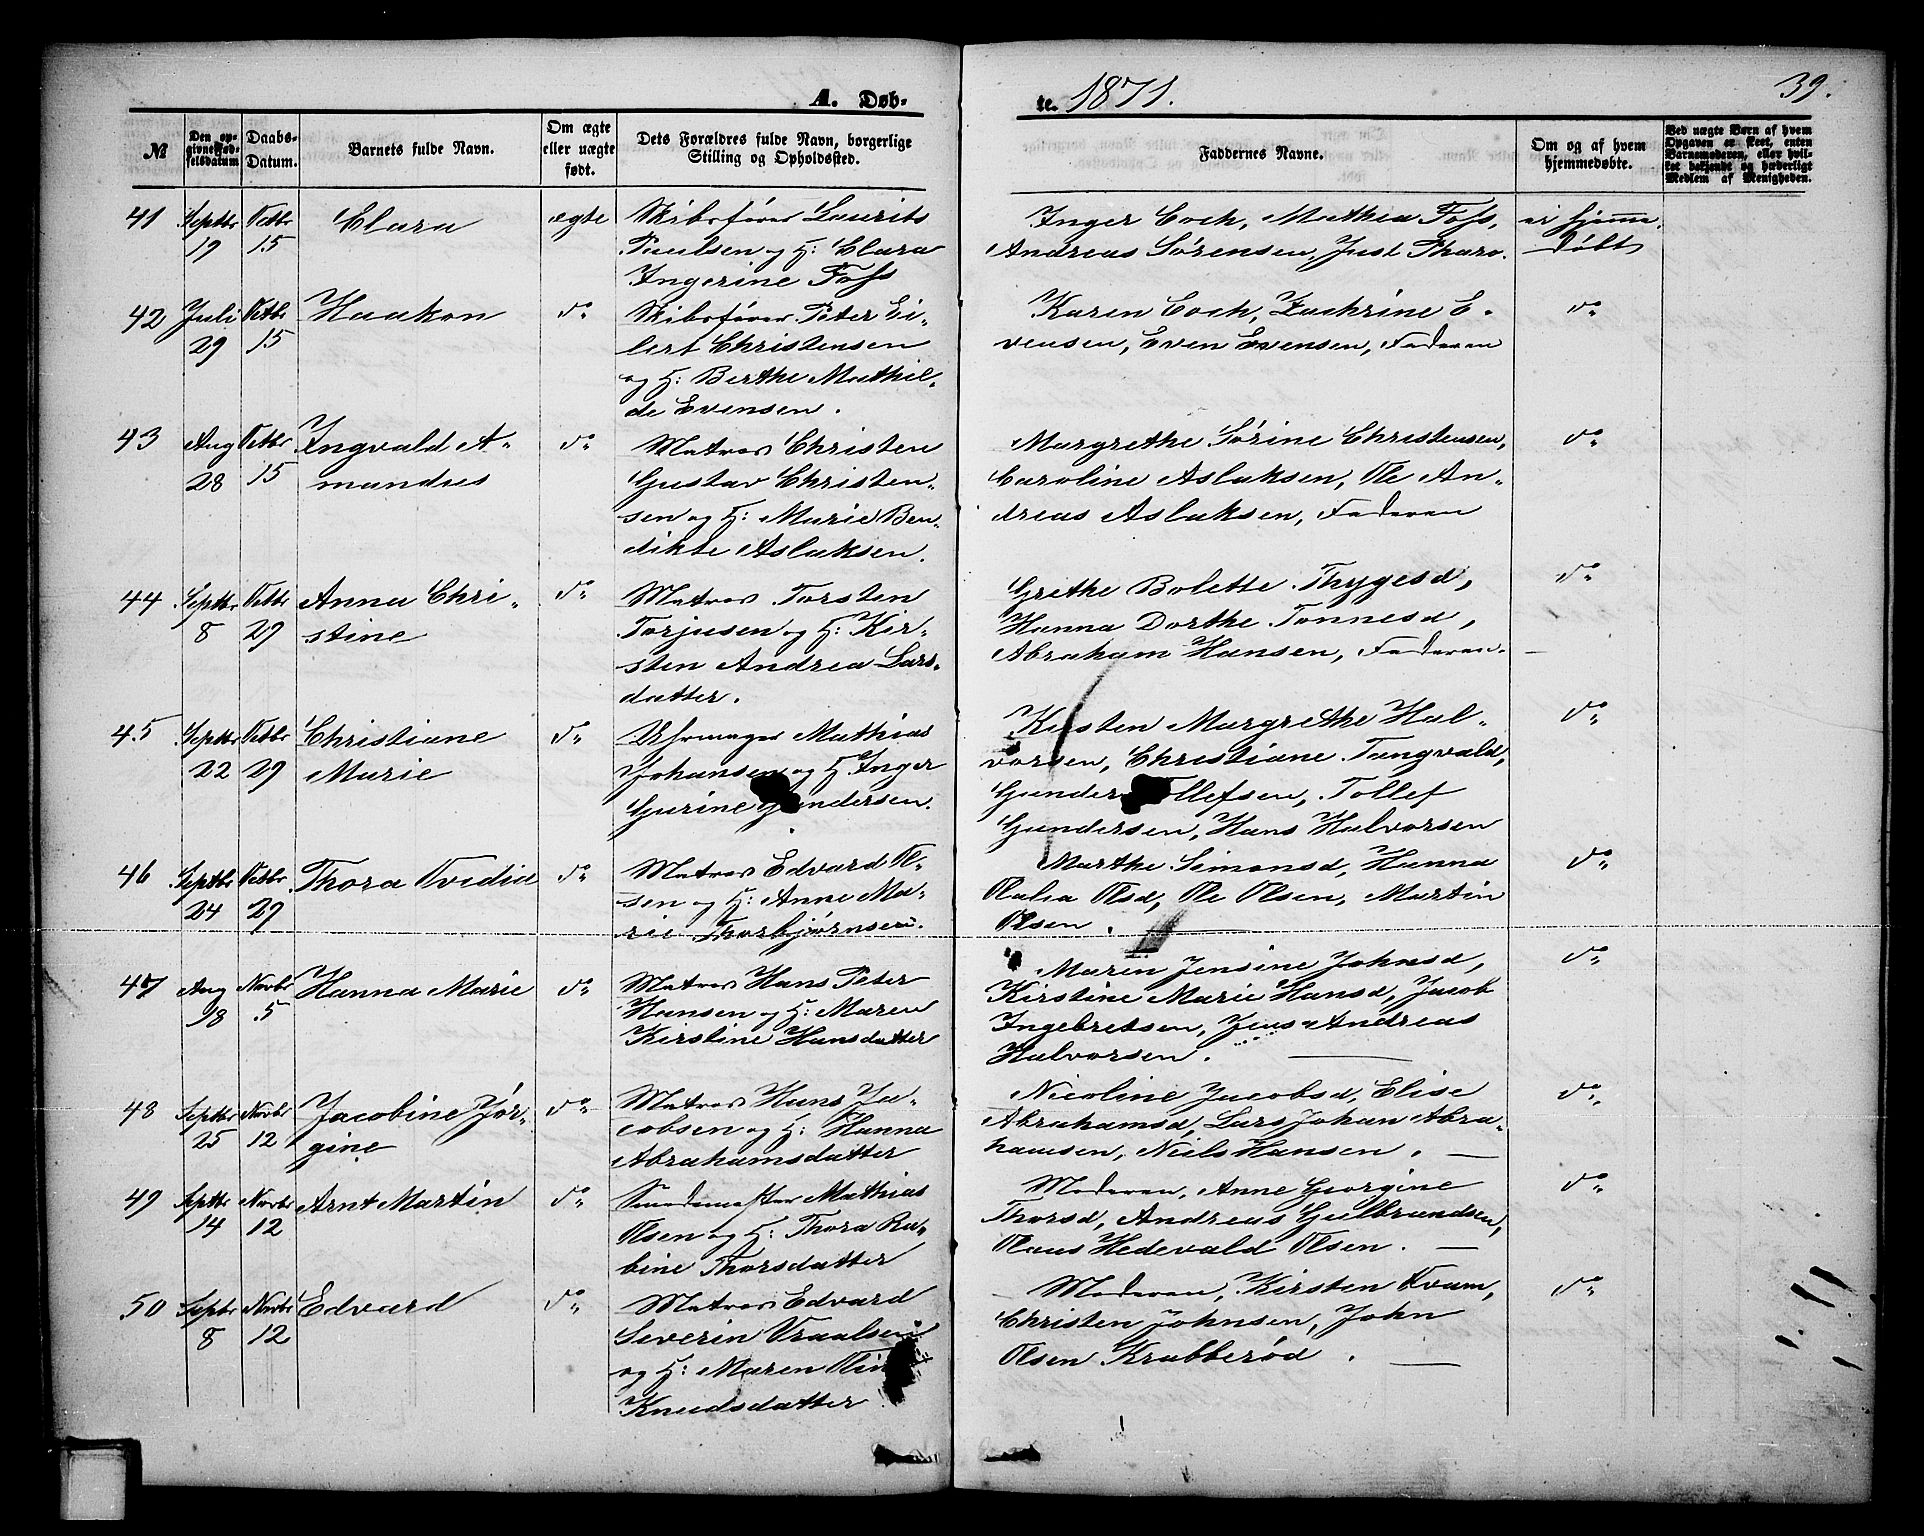 A. Døb-
te. 1871.
39.
№
Den op-
givne Fød-
selsdatum
Daabs-
Datum.
Barnets fulde Navn.
Om ægte
eller uægte
født.
Dets Forældres fulde Navn, borgerlige
Stilling og Opholdssted.
Faddernes Navne.
Om og af hvem
hjemmedøbte.
Ved uægte Børn af hvem
Opgaven er skeet, enten
Barnemoderen, eller hvil-
ket bekjendt og hæderligt
Medlem af Menigheden.
41 Septbr Octbr Clara ægte Skibsfører Laurits
19 15 Poulsen og H: Clara
Ingerine Foss
Inger Coch, Mathea Foss, ei hjemme-
Andreas Sørensen, Just Tharo. døbt
42 Juli Octbr Haakon do Skibsfører Peter Ei-
29 15 lert Christensen
og H: Berthe Mathil-
de Evensen.
Karen Coch, Zachrine E- do
vensen, Even Evensen, Faderen
43 Aug Octbr Ingvald A- do Matros Christen
28 15 mandus Gustav Christen-
sen og H: Marie Ben-
dikte Aslaksen.
Margrethe Sørine Christensen, do
Caroline Aslaksen, Ole An-
dreas Aslaksen, Faderen
44 Septbr Octbr Anna Chri- do Matros Torsten
8 29 stine Torjusen og H: Kir-
sten Andrea Lars-
datter.
Grethe Bolette Thygesd, do
Hanna Dorthe Tønnesd,
Abraham Hansen, Faderen.
45 Septbr Octbr Christiane do Uhrmager Mathias
22 29 Marie Johansen og H Inger
Gurine Gundersen.
Kirsten Margrethe Hal- do
vorsen, Christiane Tangvald,
Gunder Tollefsen, Tollef
Gundersen, Hans Halvorsen
46 Septbr Octbr Thora Ovidia do Matros Edvard Ol-
24 29 sen og H: Anne Ma-
rie Thorbjørnsen.
Marthe Simonsd, Hanna do
Olalia Olsd, Ole Olsen, Martin
Olsen.
47 Aug Novbr Hanna Marie do Matros Hans Peter
18 5 Hansen og H: Maren
Kirstine Hansdatter
Maren Jensine Johnsd, do
Kirstine Marie Hansd, Jacob
Ingebretsen, Jens Andreas
Halvorsen.
48 Septbr Novbr Jacobine Jør- do Matros Hans Ja-
25 12 gine cobsen og H: Hanna
Abrahamsdatter
Nicoline Jacobsd, Elise do
Abrahamsd, Lars Johan Abra-
hamsen, Niels Hansen.
49 Septbr Novbr Arnt Martin do Smedemester Mathias
14 12 Olsen og H: Thora Ra-
bine Thorsdatter
Moderen, Anne Georgine do
Thorsd, Andreas Gulbrandsen,
Olaus Hedevald Olsen.
50 Septbr Novbr Edvard do Matros Edvard
8 12 Severin Vraalsen
og H: Maren
Knudsdatter
Moderen, Kirsten Kvam, do
Christen Johnsen, John
Olsen Krabberød.